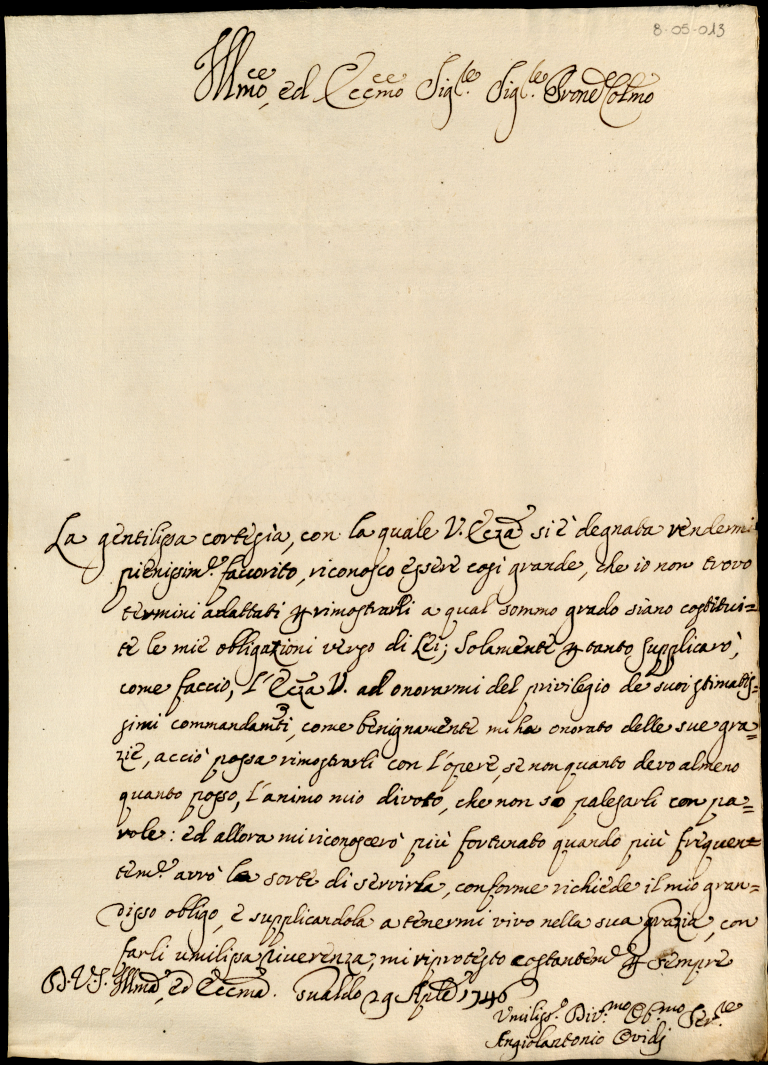 8-05-013
Ill.mo, ed Ecc.mo Sig.re Sig.re Prone Colmo
La gentilissa cortesia, con la quale V. Ecza si è degnata rendermi
pienissim.e favorito, riconosco essere così grande, che io non trovo
termini adattati p rimostrarli a qual sommo grado siano costitui=
te le mie obligazioni verso di Lei; Solamente p tanto supplicarò,
come faccio, l'Ecza V. ad onorarmi del privilegio de suoi stimatis=
simi commandam.ti, come benignamente mi ha onorato delle sue gra=
zie, acciò possa rimostrarli con l'opere, se non quanto devo almeno
quanto posso, l'animo mio divoto, che non so palesarli con pa=
role: ed allora mi riconoscerò più fortunato quando più frequen=
tem.e avrò la sorte di servirla, conforme richiede il mio gran=
disso obligo, e supplicandola a tenermi vivo nella sua grazia, con
farli umilissa riverenza, mi riprotesto costantem.e p sempre
D. V. S. Illma, ed Eccma. Gualdo 29 Aple 1746
Umiliss.o Div.mo Ob.mo Ser.re
Angiolantonio Ovidj